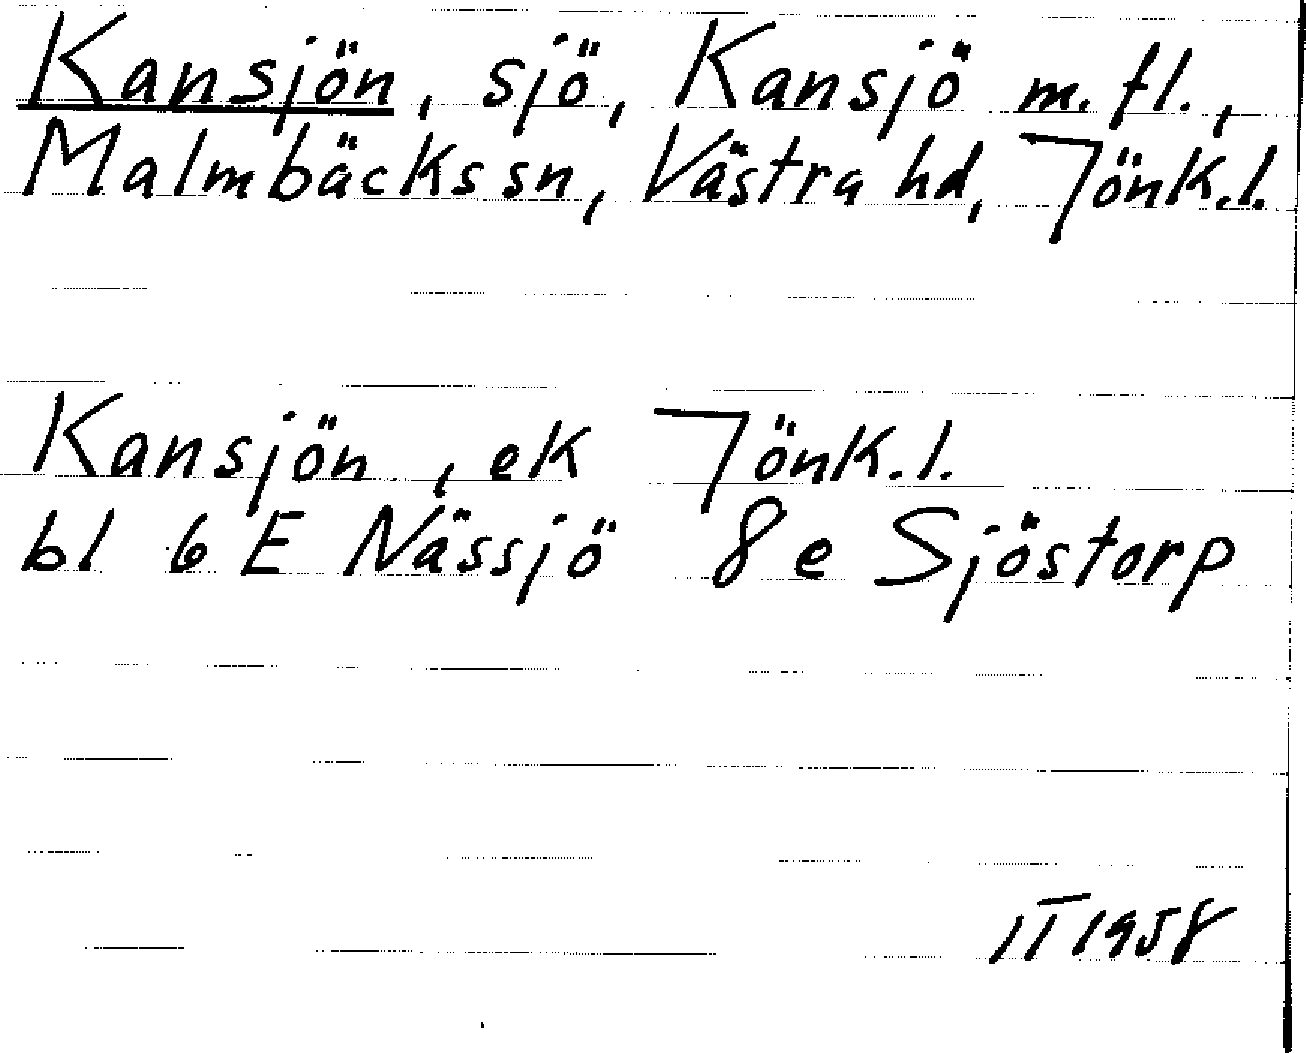 Kansjön, sjö, Kansjö m.fl.,
Malmbäcks sn, Västra hd, Jönk.l.
Kansjön, ek Jönk.l.
bl 6 E Nässjö 8 e Sjöstorp
1958